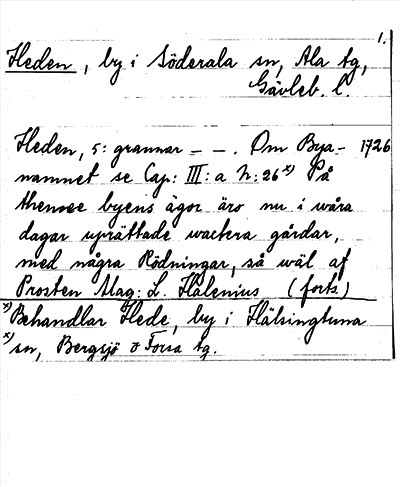 1.
Heden, by i Söderala sn, Ala tg,
Gävleb. l.
Heden, 5: grannar – – . Om Bya- 1726
namnet se Cap: III: a N: 26 x) På
thenne byens ägor äro nu i wåra
dagar uprättade wackra gårdar,
med några Rödningar, så wäl af
Prosten Mag: L. Halenius (forts)
x) Behandlar Hede, by i Hälsingtuna
x) sn, Bergsjö o Forsa tg.